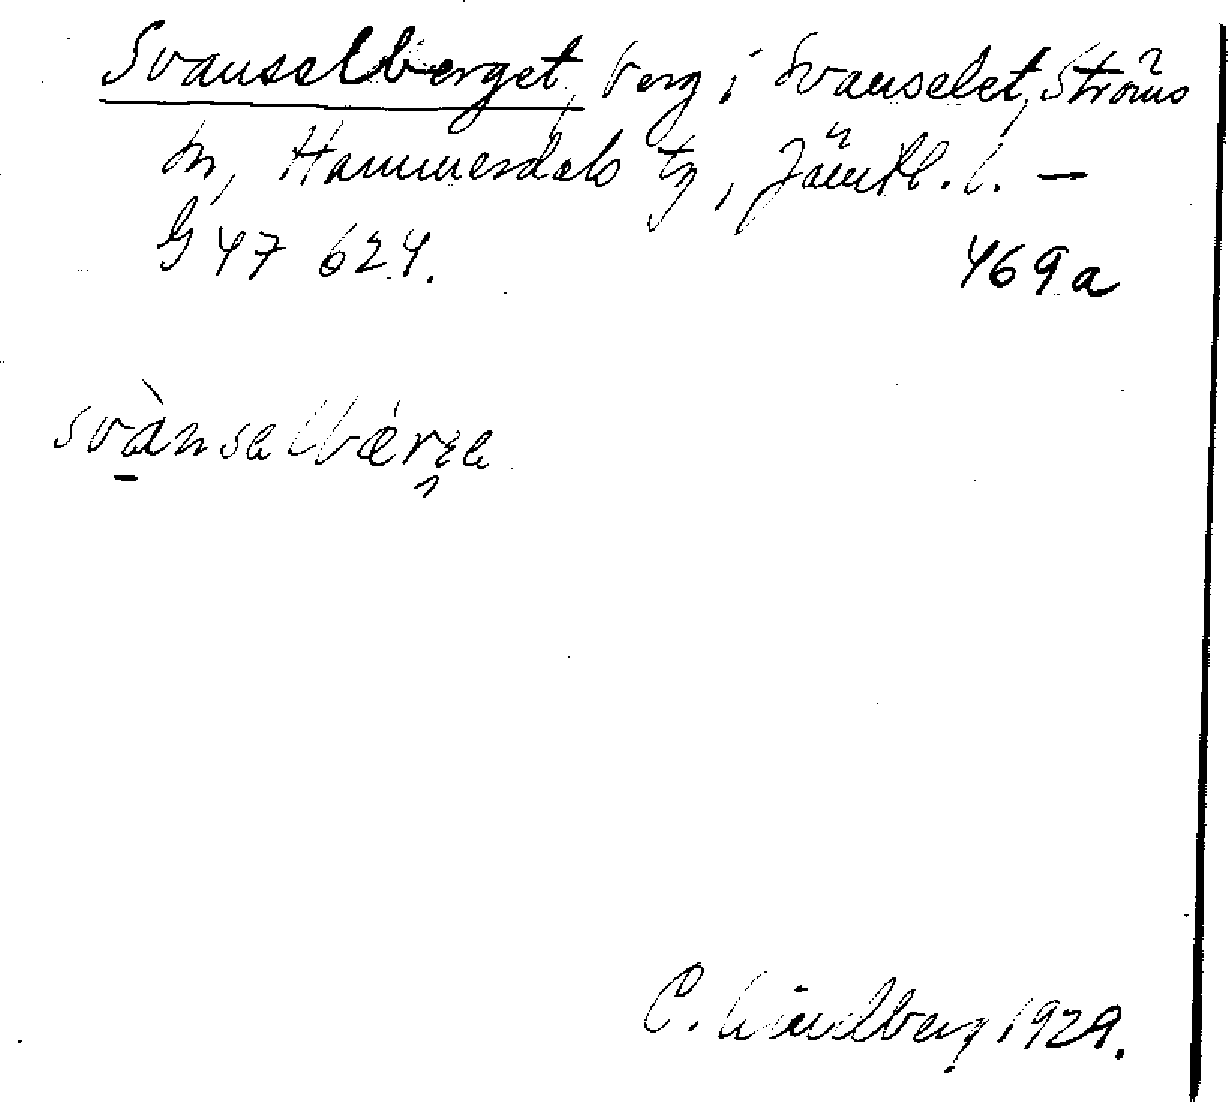 Svanselberget, berg i Svanselet, Ströms
sn, Hammerdals tg, Jämtl. l. —
G 47 624. 469a
svànselbærge
C. Lindberg 1929.